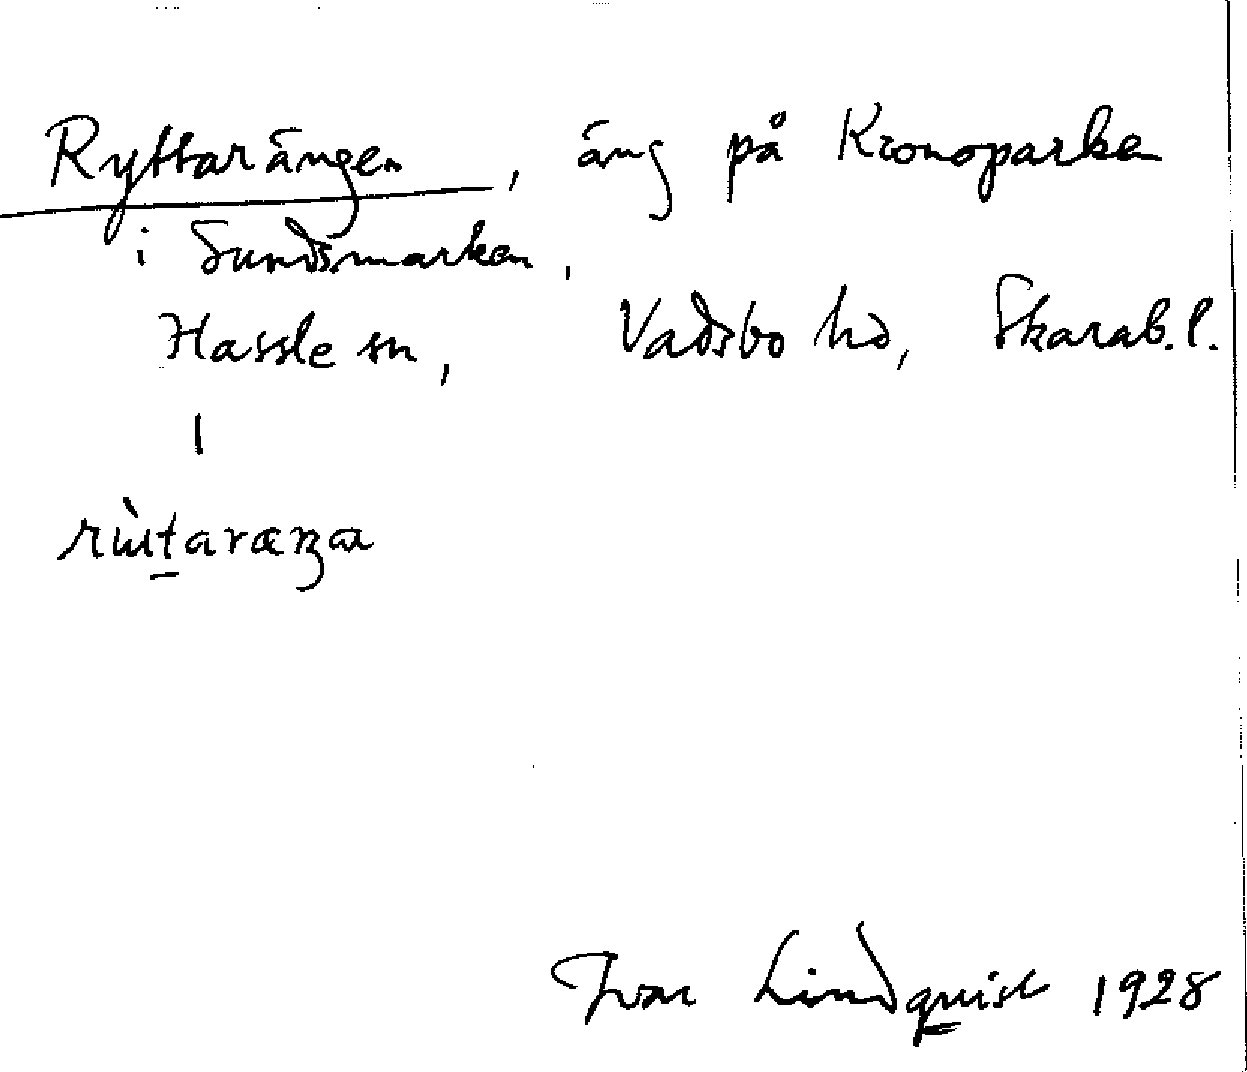 Ryttarängen, äng på Kronoparken
i Sundsmarken,
Hassle sn, Vadsbo hd, Skarab. l.
|
Ivar Lindquist 1928